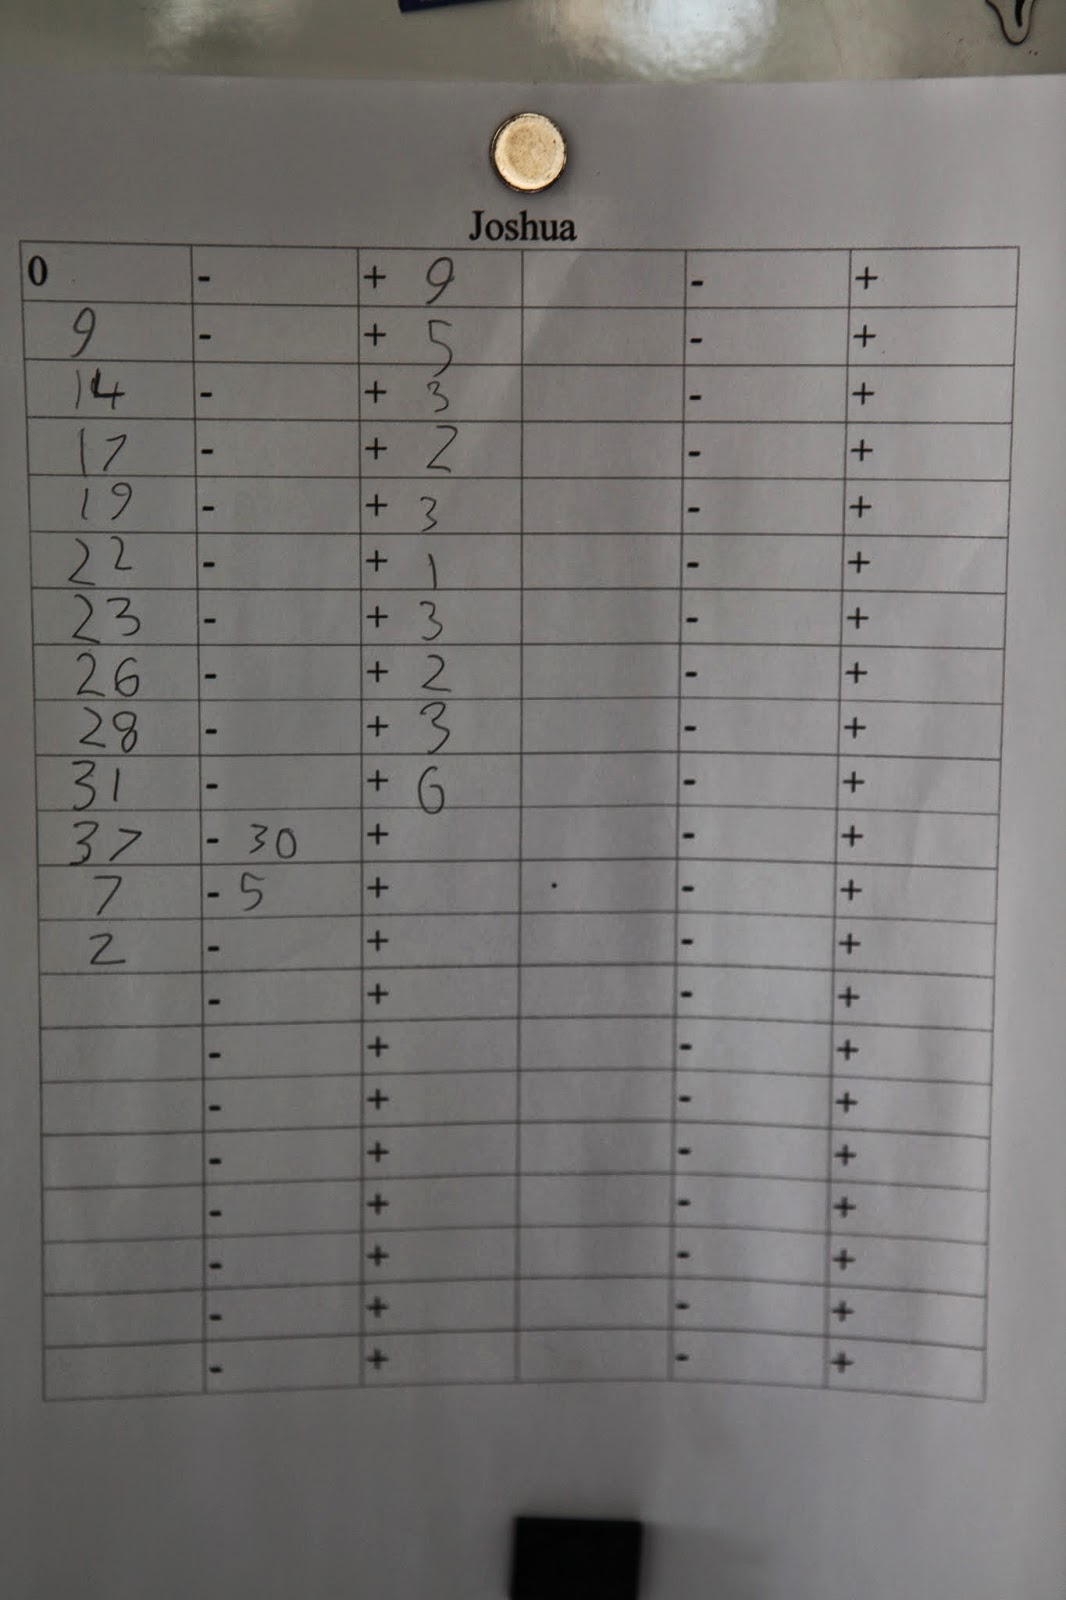 Joshua
0 - + 9 - +
9 - + 5 - +
14 - + 3 - +
17 - + 2 - +
19 - + 3 - +
22 - + 1 - +
23 - + 3 - +
26 - + 2 - +
28 - + 3 - +
31 - + 6 - +
37 - 30 + - +
7 - 5 + - +
2 - + - +
- + - +
- + - +
- + - +
- + - +
- + - +
- + - +
- + - +
- + - +